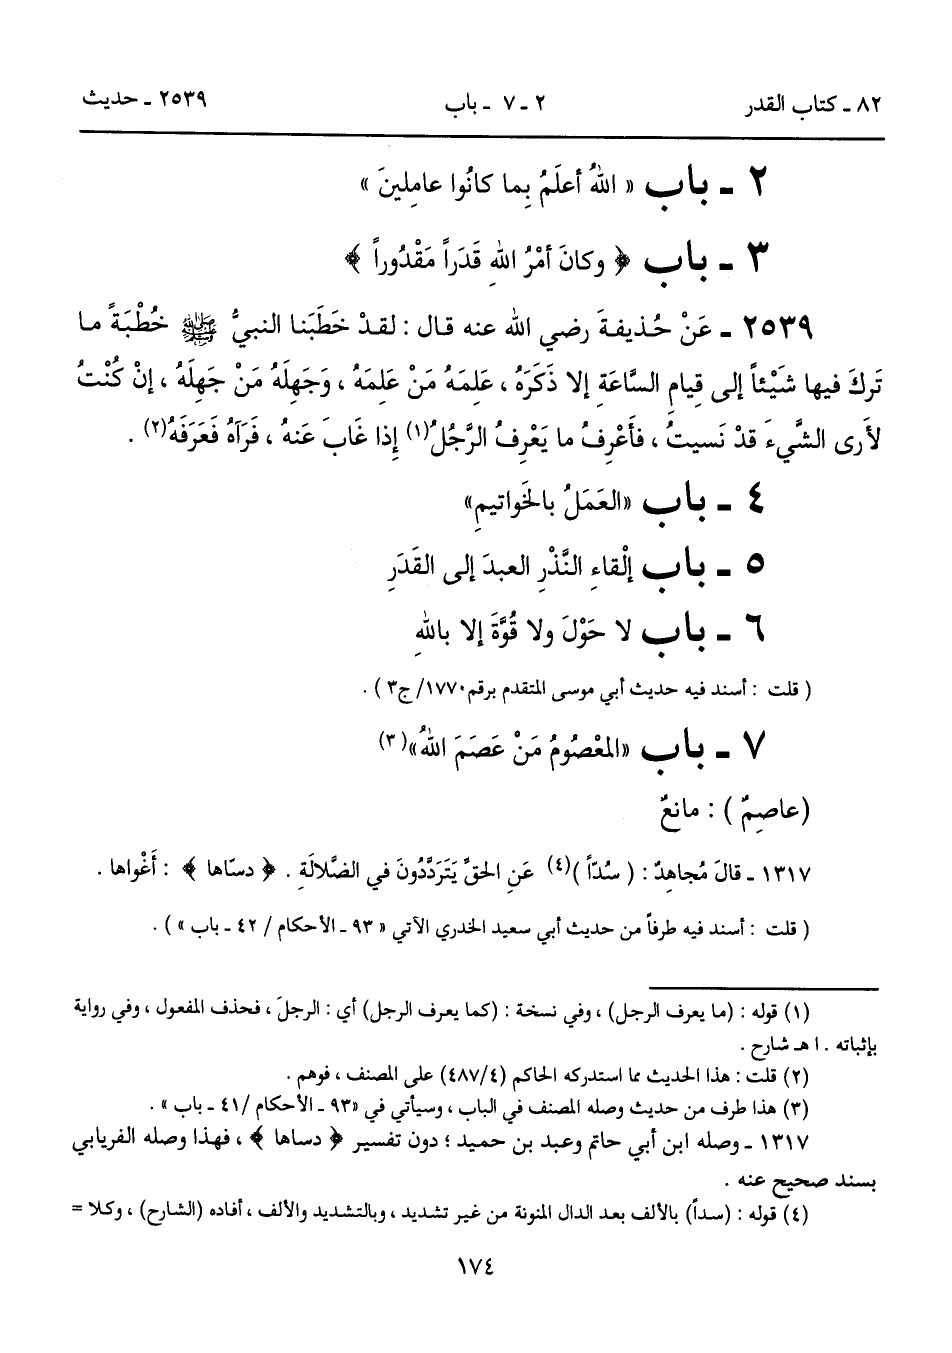 ٨٢ ـ كتاب القدر ٢ ـ ٧ ـ باب ٢٥٣٩ ـ حديث
٢ ـ باب « اللهُ أعلَمُ بِما كانُوا عامِلينَ »
٣ ـ باب ﴿ وكانَ أمْرُ اللهِ قَدَراً مَقْدُوراً ﴾
٢٥٣٩ ـ عَنْ حُذيفةَ رضي الله عنه قال : لقدْ خَطَبَنا النبيُّ ﷺ خُطْبَةً ما
تَركَ فيها شَيْئاً إلى قِيامِ السَّاعَةِ إلا ذَكَرَهُ ، عَلِمَهُ مَنْ عَلِمَهُ ، وَجَهِلَهُ مَنْ جَهِلَهُ ، إنْ كُنْتُ
لأَرى الشَّيءَ قدْ نَسيتُ ، فأَعْرِفُ ما يَعْرِفُ الرَّجُلُ(١) إِذا غَابَ عَنهُ ، فَرَآهُ فَعَرَفَهُ(٢) .
٤ ـ باب «العَمَلُ بالخَواتيمِ»
٥ ـ باب إلْقاءِ النَّذْرِ العبدَ إلى القَدَرِ
٦ ـ باب لا حَوْلَ ولا قُوَّةَ إلا باللهِ
( قلت : أسند فيه حديث أبي موسى المتقدم برقم ١٧٧٠/ ج٣ ) .
٧ ـ باب «المعْصُومُ مَنْ عَصَمَ اللهُ»(٣)
(عاصِمٌ ) : مانعٌ
١٣١٧ ـ قالَ مُجاهِدٌ : ( سُدّاً )(٤) عَنِ الحقِّ يَتَرَدَّدُونَ في الضَّلالَةِ . ﴿ دسّاها ﴾ : أَغْواها .
( قلت : أسند فيه طرفاً من حديث أبي سعيد الخدري الآتي « ٩٣ ـ الأحكام / ٤٢ ـ باب » ) .
(١) قوله : (ما يعرف الرجل) ، وفي نسخة : (كما يعرف الرجل) أي : الرجلَ ، فحذف المفعول ، وفي رواية
بإثباته . ا هـ شارح .
(٢) قلت : هذا الحديث مما استدركه الحاكم (٤٨٧/٤) على المصنف ، فوهم .
(٣) هذا طرف من حديث وصله المصنف في الباب ، وسيأتي في «٩٣ ـ الأحكام /٤١ ـ باب » .
١٣١٧ ـ وصله ابن أبي حاتم وعبد بن حميد ؛ دون تفسير ﴿ دساها ﴾ ، فهذا وصله الفريابي
بسند صحيح عنه .
(٤) قوله : (سداً) بالألف بعد الدال المنونة من غير تشديد ، وبالتشديد والألف ، أفاده (الشارح) ، وكلا =
١٧٤